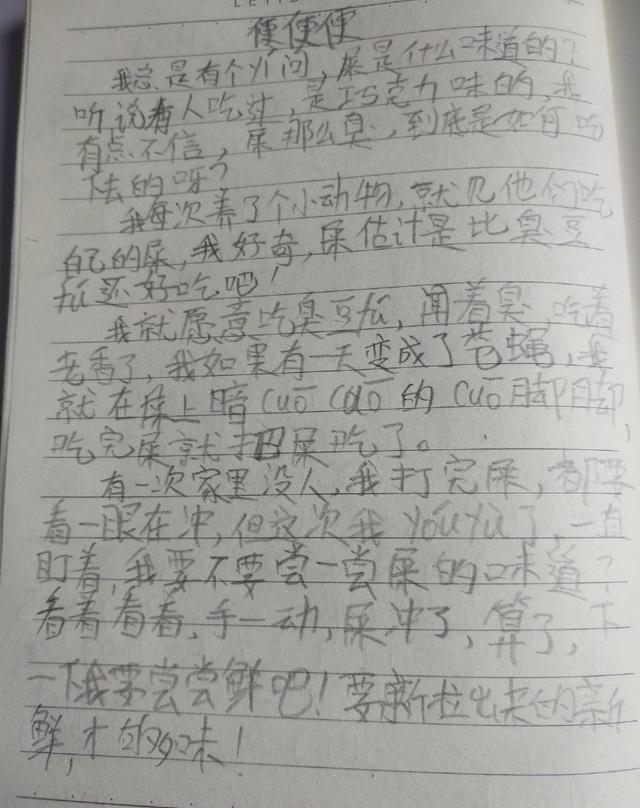 便便便
我总是有个疑问,屎是什么味道的?
听说有人吃过,是巧克力味的,我
有点不信,屎那么臭,到底是如何吃
下去的呀?
我每次养了个小动物,就见他们吃
自己的屎,我好奇,屎估计是比臭豆
瓜还好吃吧!
我就愿意吃臭豆瓜,闻着臭,吃着
老香了,我如果有一天变成了苍蝇,我
就在屎上暗cuō cuō的cuō脚脚,
吃完屎就把屎吃了。
有一次家里没人,我打完屎,都要
看一眼在冲,但这次我yóuyù了,一直
盯着,我要不要尝一尝屎的味道?
看着看着,手一动,屎冲了,算了,下
一下我要尝尝鲜吧!要新拉出来的新
鲜,才的如味!